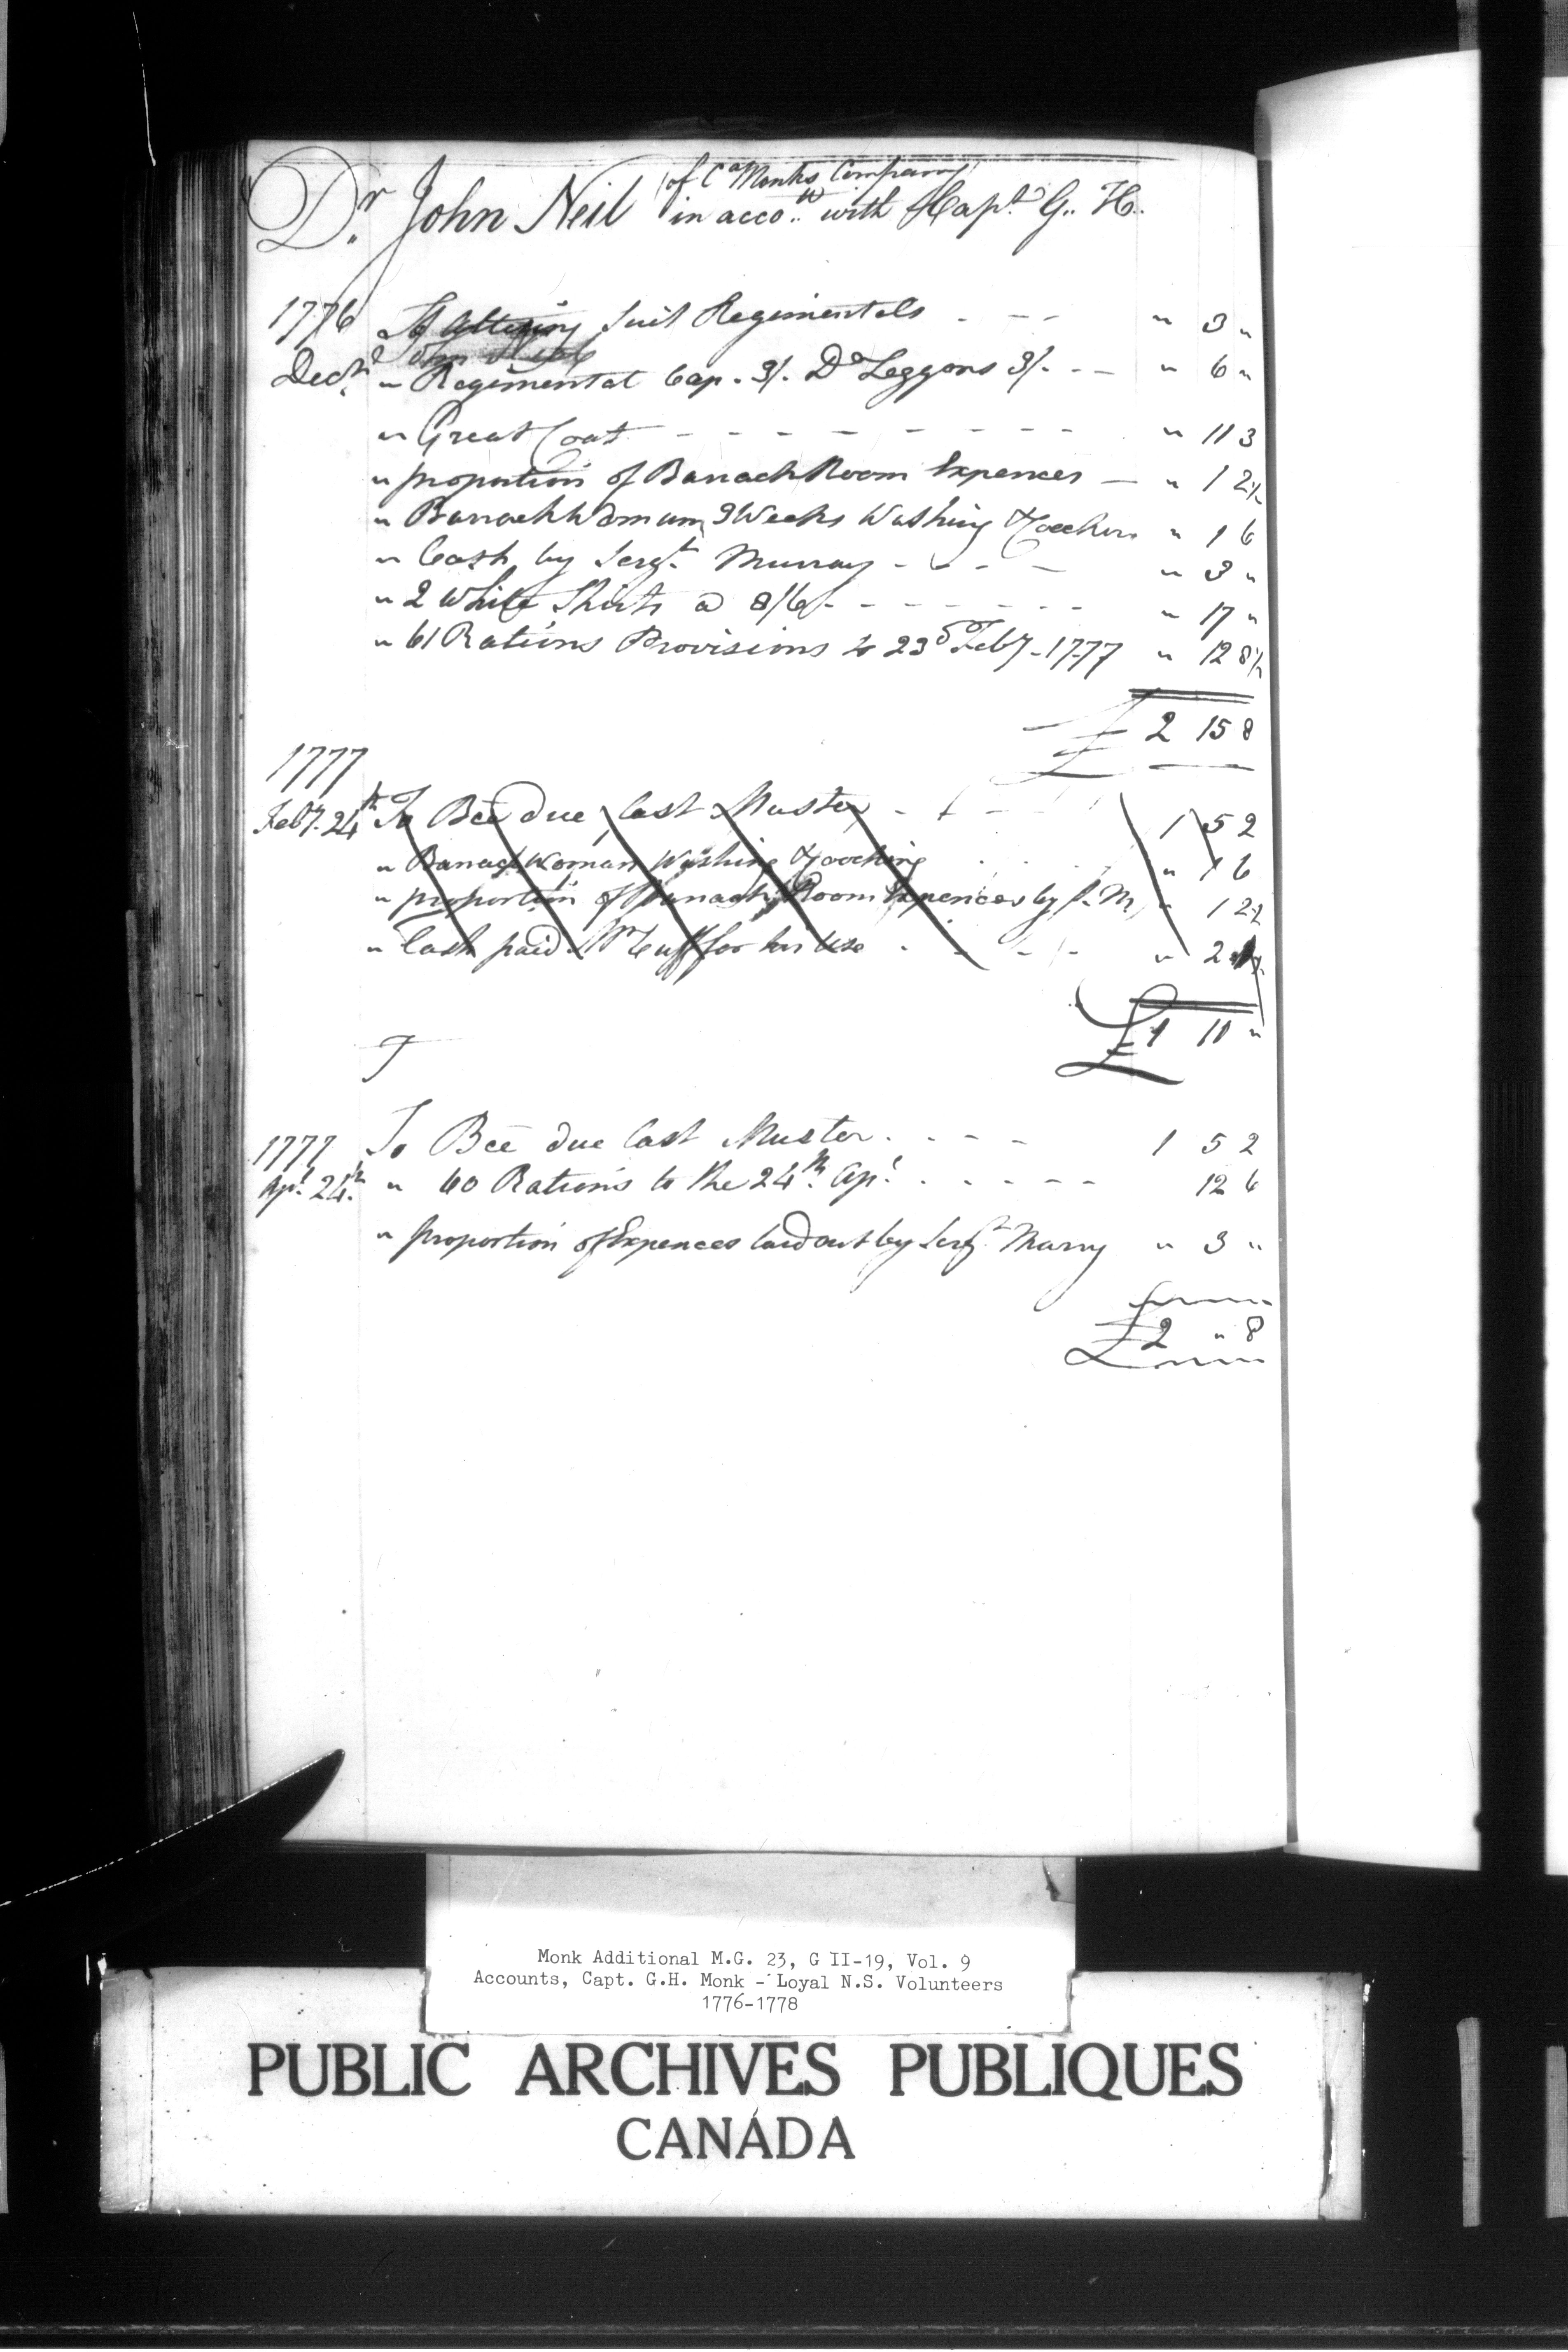 Dr. John Neil (of Co Monks Company)
in acco.t with Capt. G.. H..
1776 To Altering Suit Regimentals - - - " 3 "
Decr. " Regimental Cap. 3/. Do Leggons 3/. - - " 6 "
" Great Coat - - - - - - - - - " 11 3
" proportion of Barrack Room Expences — " 1 2½
" Barrack Woman 9 Weeks Washing & " 1 6
" Cash by Sergt. Murray - - - - " 3 "
" 2 White Shirts @ 8/6 - - - - - - - " 17 "
" 61 Rations Provisions to 23d Feby - 1777 " 12 8½
£ 2 15 8
1777
Feby. 24th To Bce due last Muster - - - 1 5 2
" Barrack Woman Washing & " 1 6
" proportion of Barrack Room Expences by S. M. " 1 2½
" Cash paid Mr Cuff for his Use - - - - " 2
£ 1 11 "
T
1777 To Bce due last Muster. - - - 1 5 2
Apl. 24th. " 60 Rations to the 24th. Apl. - - - - - 12 6
" proportion of Expences laid out by Sergt. Marry " 3 "
£ 2 " 8
Monk Additional M.G. 23, G II-19, Vol. 9
Accounts, Capt. G.H. Monk - Loyal N.S. Volunteers
1776-1778
PUBLIC ARCHIVES PUBLIQUES
CANADA